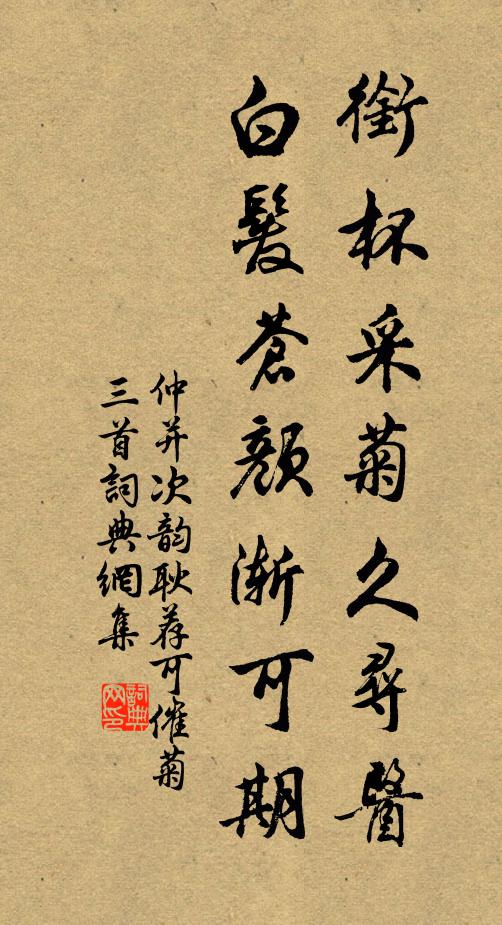 銜杯采菊久尋醫
白髮蒼顏漸可期
仲并次韵耿荐可催菊
三首詞典網集
詞典网印